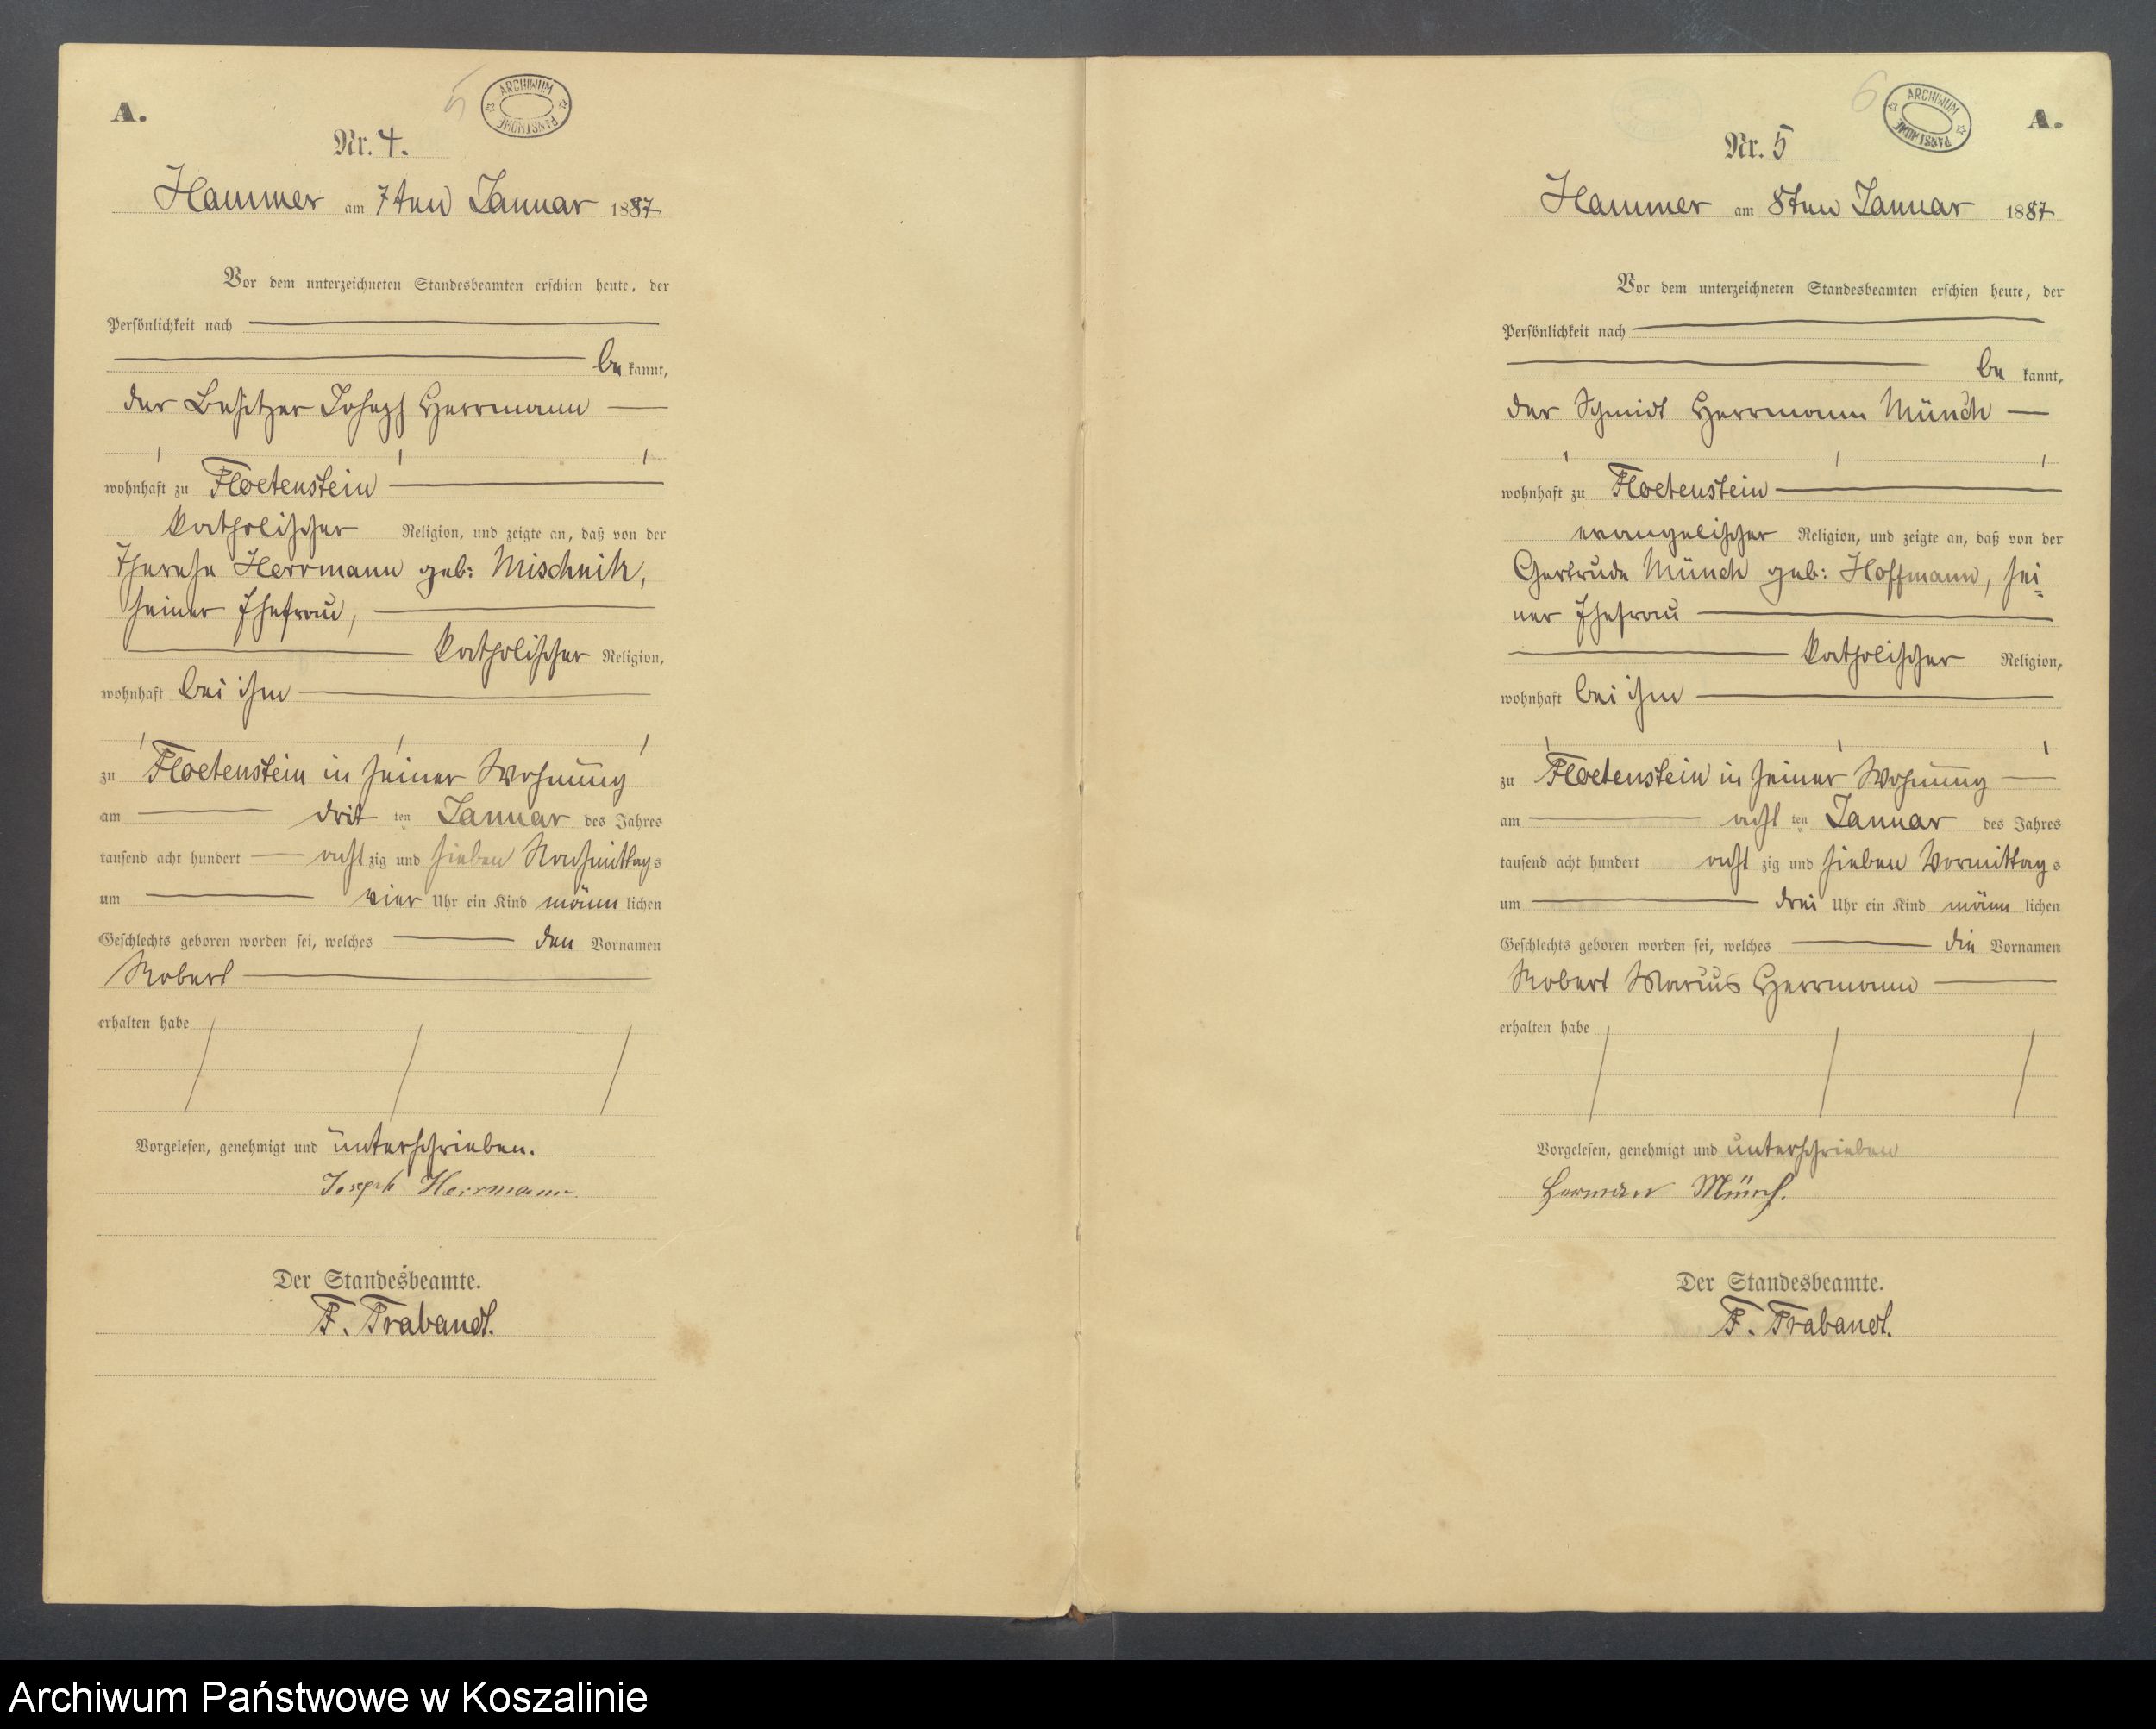 A.
5
ARCHIWUM PAŃSTWOWE
Nr. 4.
Hammer am 7ten Januar 1887
Vor dem unterzeichneten Standesbeamten erschien heute, der
Persönlichkeit nach
be kannt,
der Besitzer Joseph Herrmann
wohnhaft zu Floetenstein
katholischer Religion, und zeigte an, daß von der
Therese Herrmann geb: Mischnik,
seiner Ehefrau,
katholischer Religion,
wohnhaft bei ihm
zu Floetenstein in seiner Wohnung
am drit ten Januar des Jahres
tausend acht hundert acht zig und sieben Nachmittag s
um vier Uhr ein Kind männ lichen
Geschlechts geboren worden sei, welches den Vornamen
Robert
erhalten habe
Vorgelesen, genehmigt und unterschrieben.
Joseph Herrmann.
Der Standesbeamte.
F. Trabandt.
6
ARCHIWUM PAŃSTWOWE
A.
Nr. 5
Hammer am 8ten Januar 1887
Vor dem unterzeichneten Standesbeamten erschien heute, der
Persönlichkeit nach
be kannt,
der Schmidt Herrmann Münch
wohnhaft zu Floetenstein
evangelischer Religion, und zeigte an, daß von der
Gertrude Münch geb: Hoffmann, sei=
ner Ehefrau
katholischer Religion,
wohnhaft bei ihm
zu Floetenstein in seiner Wohnung
am acht ten Januar des Jahres
tausend acht hundert acht zig und sieben Vormittag s
um drei Uhr ein Kind männ lichen
Geschlechts geboren worden sei, welches die Vornamen
Robert Marius Herrmann
erhalten habe
Vorgelesen, genehmigt und unterschrieben
Herman Münch.
Der Standesbeamte.
F. Trabandt.
Archiwum Państwowe w Koszalinie